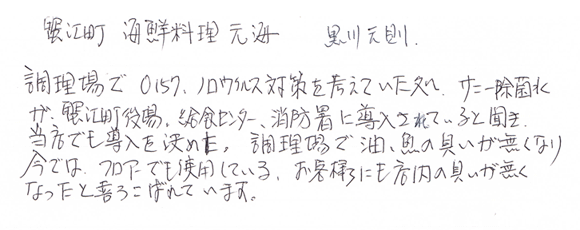 蟹江町 海鮮料理 元海 黒川天則.
調理場で O157、ノロウィルス対策を考えていた処、サニー除菌水
が、蟹江町役場、給食センター、消防署に導入されていると聞き、
当店でも導入を決めた。調理場で油、魚の臭いが無くなり
今では、フロアーでも使用している、お客様にも店内の臭いが無く
なったと喜ろこばれています。